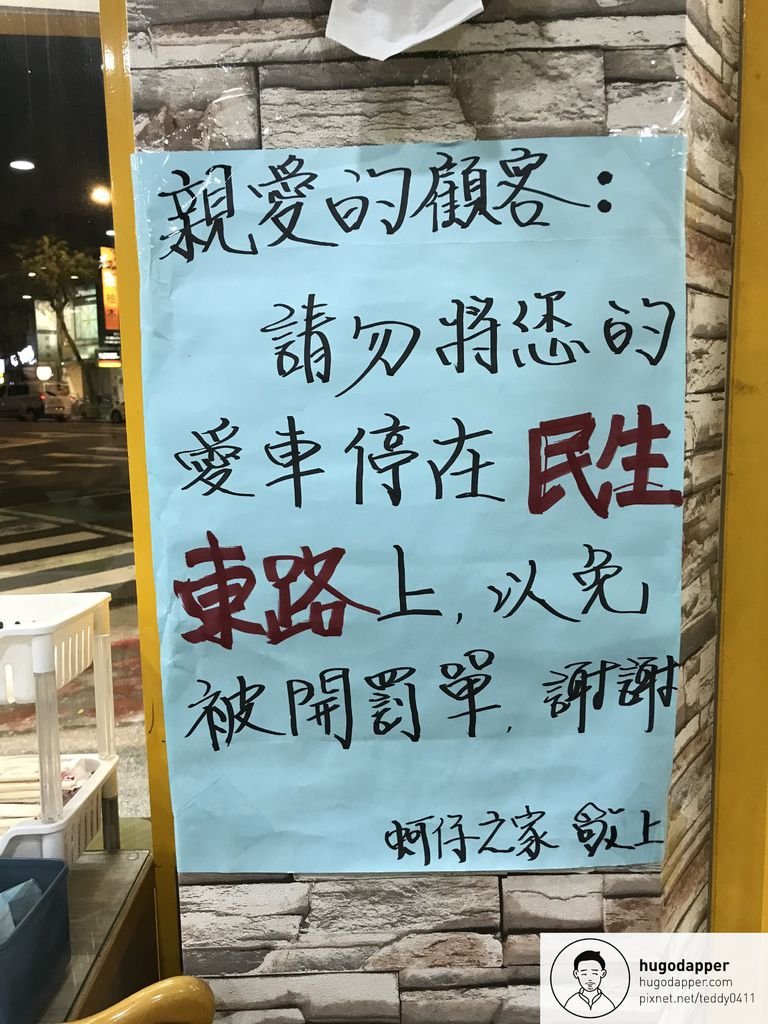 親愛的顧客：
請勿將您的
愛車停在民生
東路上，以免
被開罰單，謝謝
蚵仔之家 敬上
hugodapper
hugodapper.com
pixnet.net/teddy0411